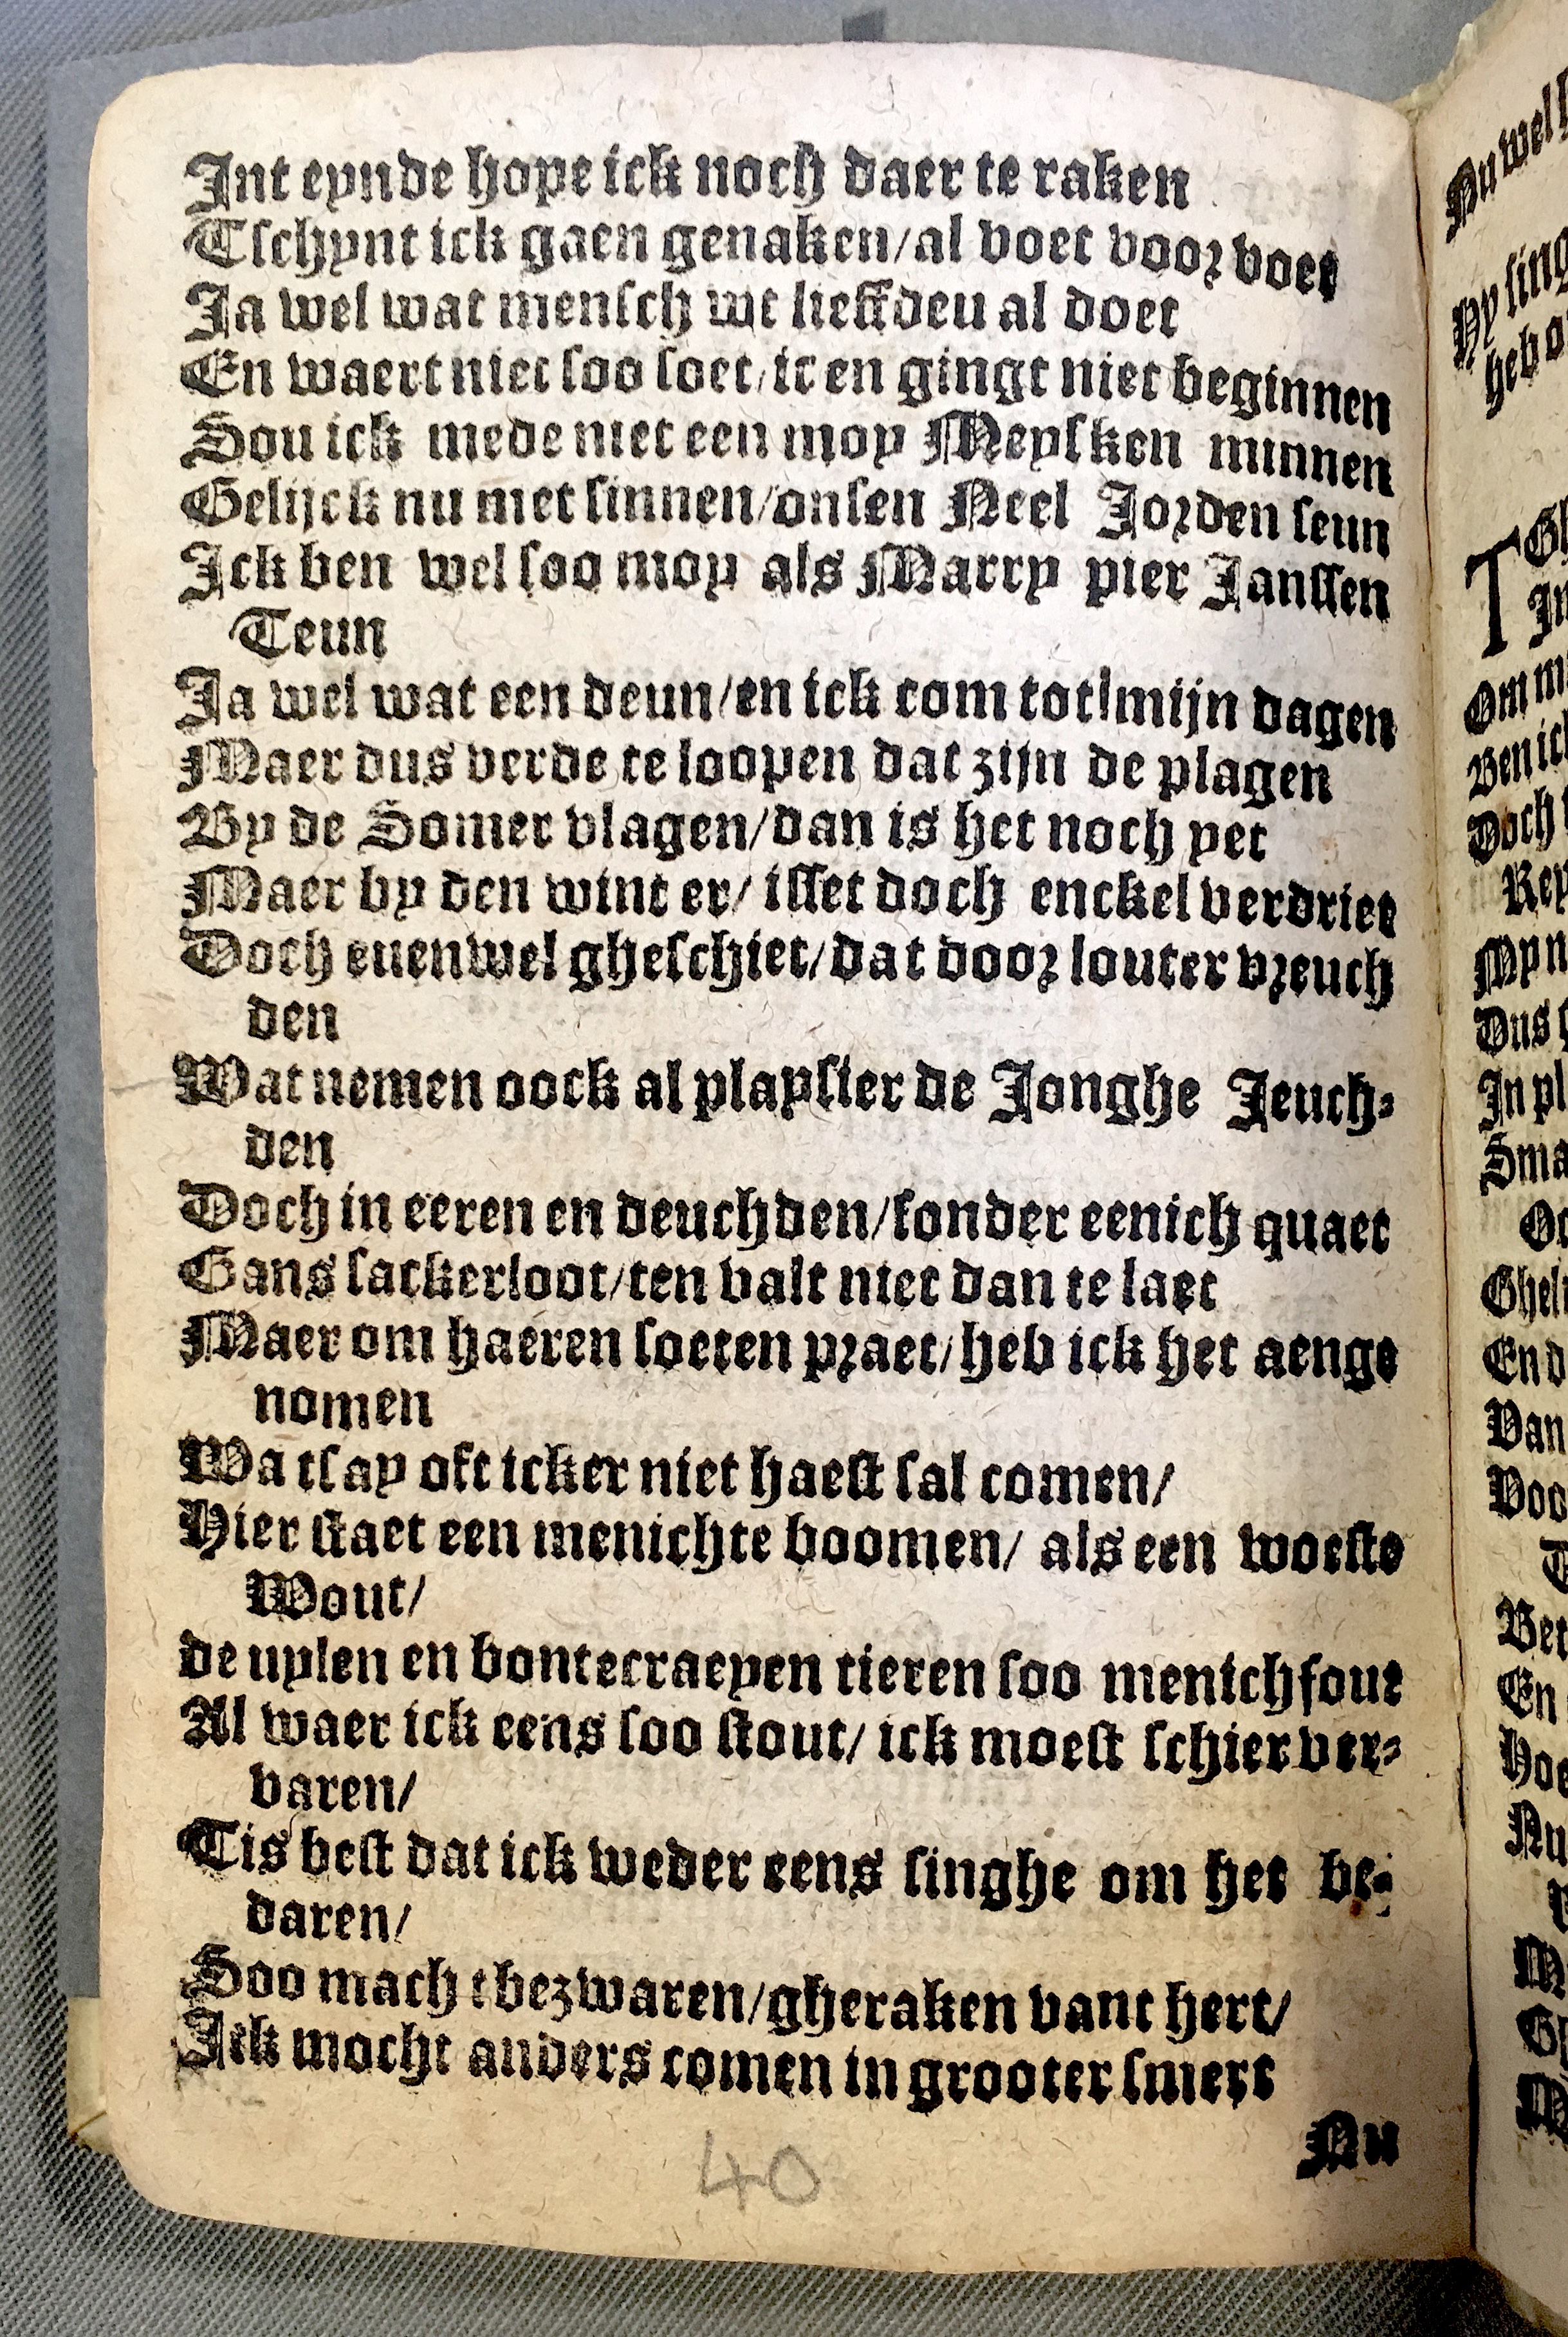 Int eynde hope ick noch daer te raken
Tschynt ick gaen genaken/al voet voor voet
Ja wel wat mensch wt liefdeu al doet
En waert niet soo soet/ic en gingt niet beginnen
Sou ick mede niet een moy Meysken minnen
Gelijck nu met sinnen/onsen Neel Jorden seun
Ick ben wel soo moy als Marry pier Janssen
Teun
Ja wel wat een deun/en ick com tot mijn dagen
Maer dus verde te loopen dat zijn de plagen
By de Somer vlagen/dan is het noch yet
Maer by den wint er/ isset doch enckel verdriet
Doch euenwel gheschiet/dat door louter vreuch
den
Wat nemen oock al playsier de Jonghe Jeuch-
den
Doch in eeren en deuchden/sonder eenich quaet
Gans sackerloot/ten valt niet dan te laet
Maer om haeren soeten praet/heb ick het aenge
nomen
Wa tsay oft icker niet haest sal comen/
Hier staet een menichte boomen/ als een woeste
Wout/
de uylen en bontecraeyen tieren soo menichfout
Al waer ick eens soo stout/ ick moest schier ver-
varen/
Tis best dat ick weder eens singhe om het be-
daren/
Soo mach tbezwaren/gheraken vant hert/
Ick mocht anders comen in grooter smert
Nu
40
Nu wel
Hy sing
heb o
T Gh
In
Om m
Ben ick
Doch
Rey
Myn
Dus
In pl
Sma
Oc
Ghel
En d
Van
Voo
T
Bet
En
Hoe
Nu
M
Gh